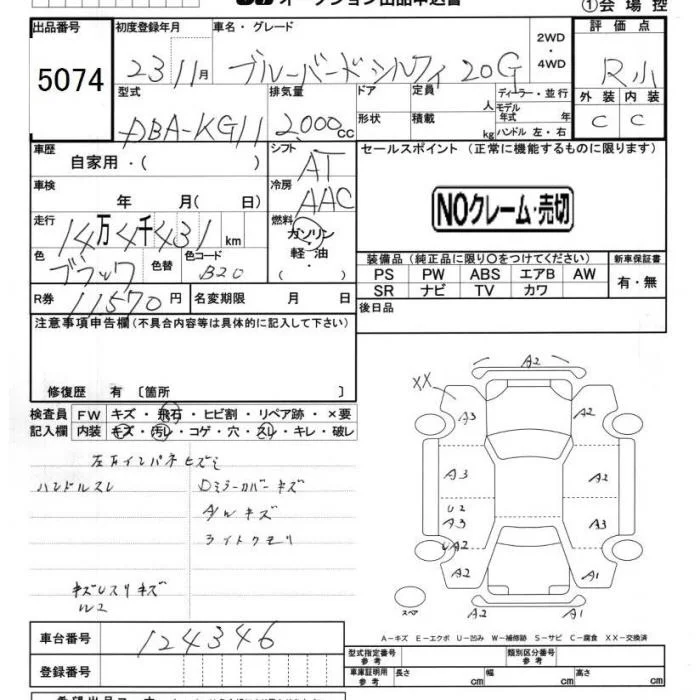 オークション出品申込書
①会場控
出品番号 5074
初度登録年月 23 11月
車名・グレード ブルーバードシルフィ 20G
2WD・4WD
評価点 R小
外装 C 内装 C
型式 DBA-KG11
排気量 2000cc
ドア 形状
定員 人
積載 kg
ディーラー・並行
モデル年式 年
ハンドル 左・右
車歴 自家用・( )
シフト AT
セールスポイント (正常に機能するものに限ります)
車検 年 月( 日)
冷房 AAC
NOクレーム・売切
走行 14万4千431km
燃料 ガソリン・軽油・( )
色 ブラック
色替
色コード B20
装備品(純正品に限り〇をつけてください)
新車保証書 有・無
PS PW ABS エアB AW
SR ナビ TV カワ
R券 11570円
名変期限 月 日
後日品
注意事項申告欄(不具合内容等は具体的に記入して下さい)
修復歴 有 〔箇所 〕
検査員記入欄
FW キズ・飛石・ヒビ割・リペア跡・×要
内装 キズ・汚レ・コゲ・穴・スレ・キレ・破レ
左右インパネヒズミ
ハンドルスレ
Dミラーカバーキズ
A/Wキズ
ライトクモリ
W2
A2
XX
A3 A2
A3 A2
U2
A3 A3
UA2
A2 A1
スペア
A2 A1
A-キズ E-エクボ U-凹み W-補修跡 S-サビ C-腐食 XX-交換済
車台番号 124346
型式指定番号 参考
類別区分番号 参考
登録番号
車庫証明用 参考 長さ cm 幅 cm 高さ cm